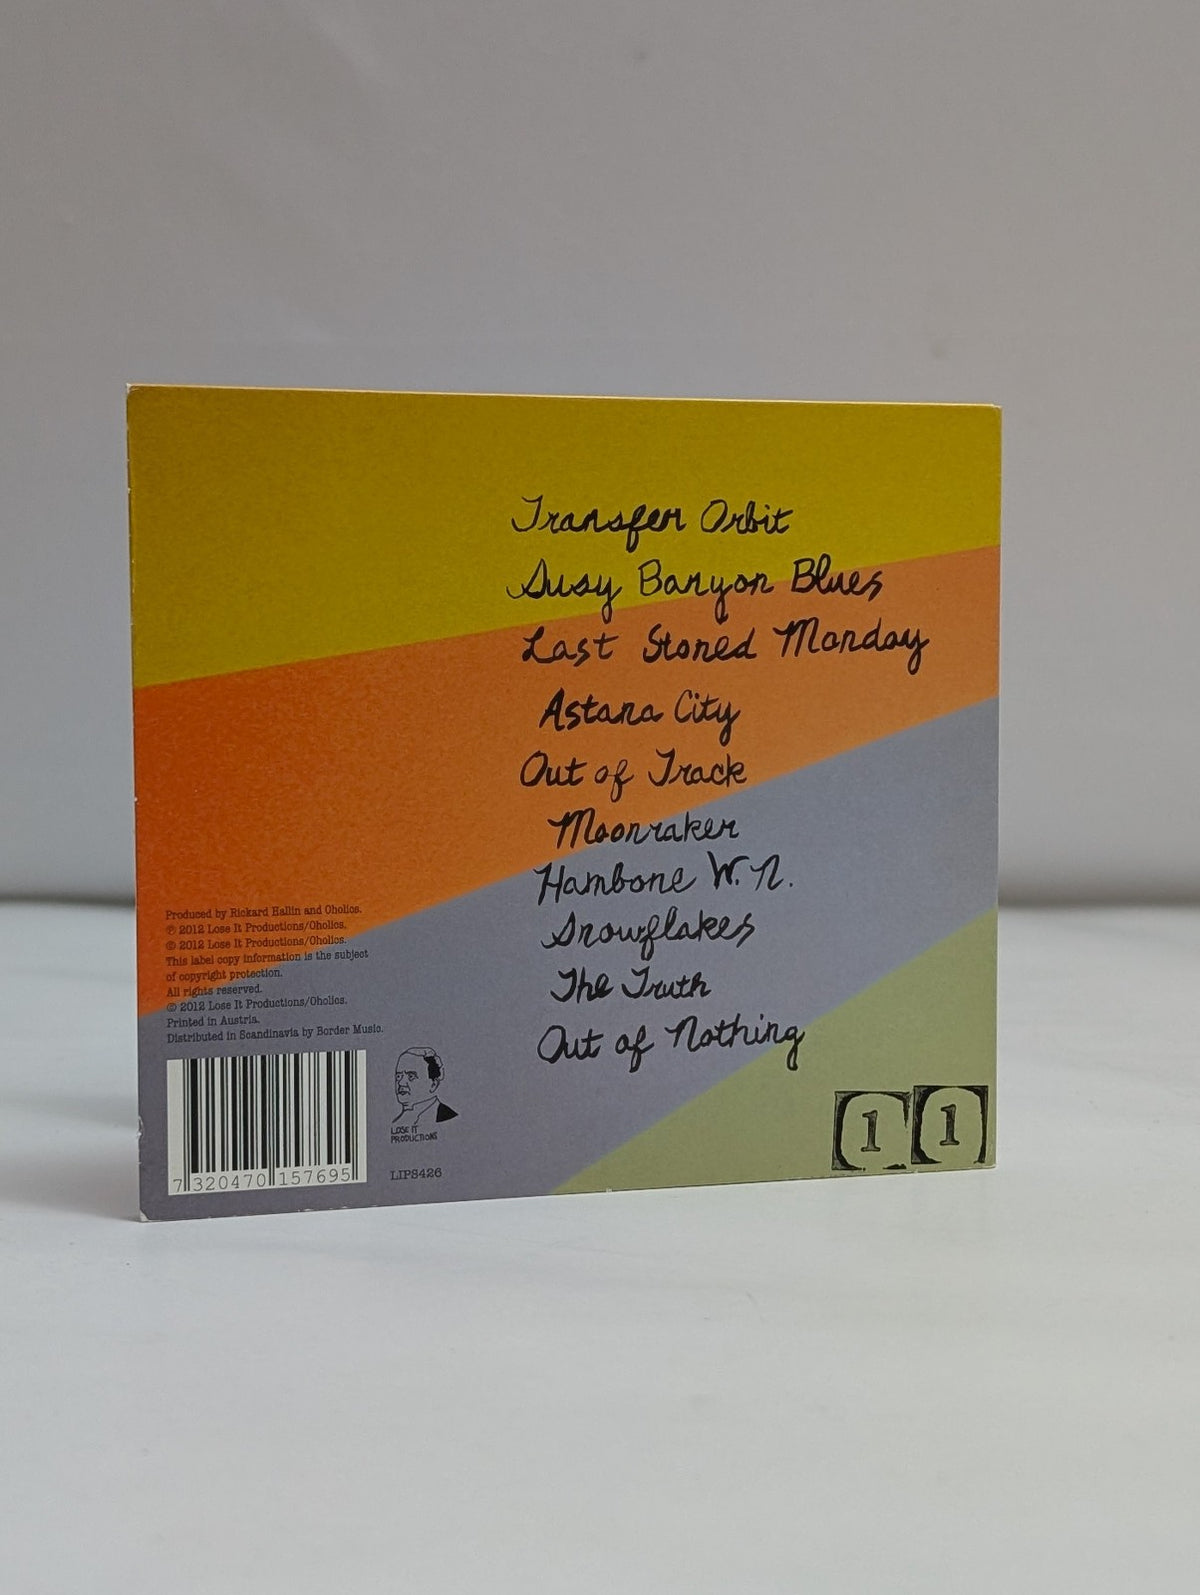 Transfer Orbit
Susy Banyon Blues
Last Stoned Monday
Astana City
Out of Track
Moonraker
Hambone W.N.
Snowflakes
The Truth
Out of Nothing
Produced by Rickard Hallin and Oholics.
℗ 2012 Lose It Productions/Oholics.
© 2012 Lose It Productions/Oholics.
This label copy information is the subject
of copyright protection.
All rights reserved.
© 2012 Lose It Productions/Oholics.
Printed in Austria.
Distributed in Scandinavia by Border Music.
7 320470 157695
LOSE IT
PRODUCTIONS
LIP8426
1 1